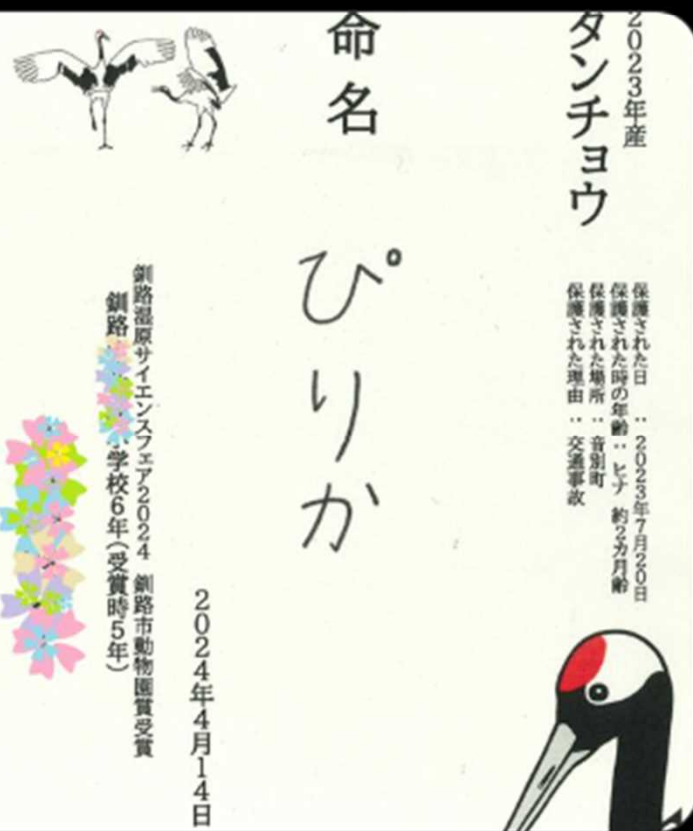 2023年産
タンチョウ
保護された日 : 2023年7月20日
保護された時の年齢 : ヒナ 約2カ月齢
保護された場所 : 音別町
保護された理由 : 交通事故
命名
ぴりか
2024年4月14日
釧路湿原サイエンスフェア2024 釧路市動物園賞受賞
釧路 学校6年(受賞時5年)